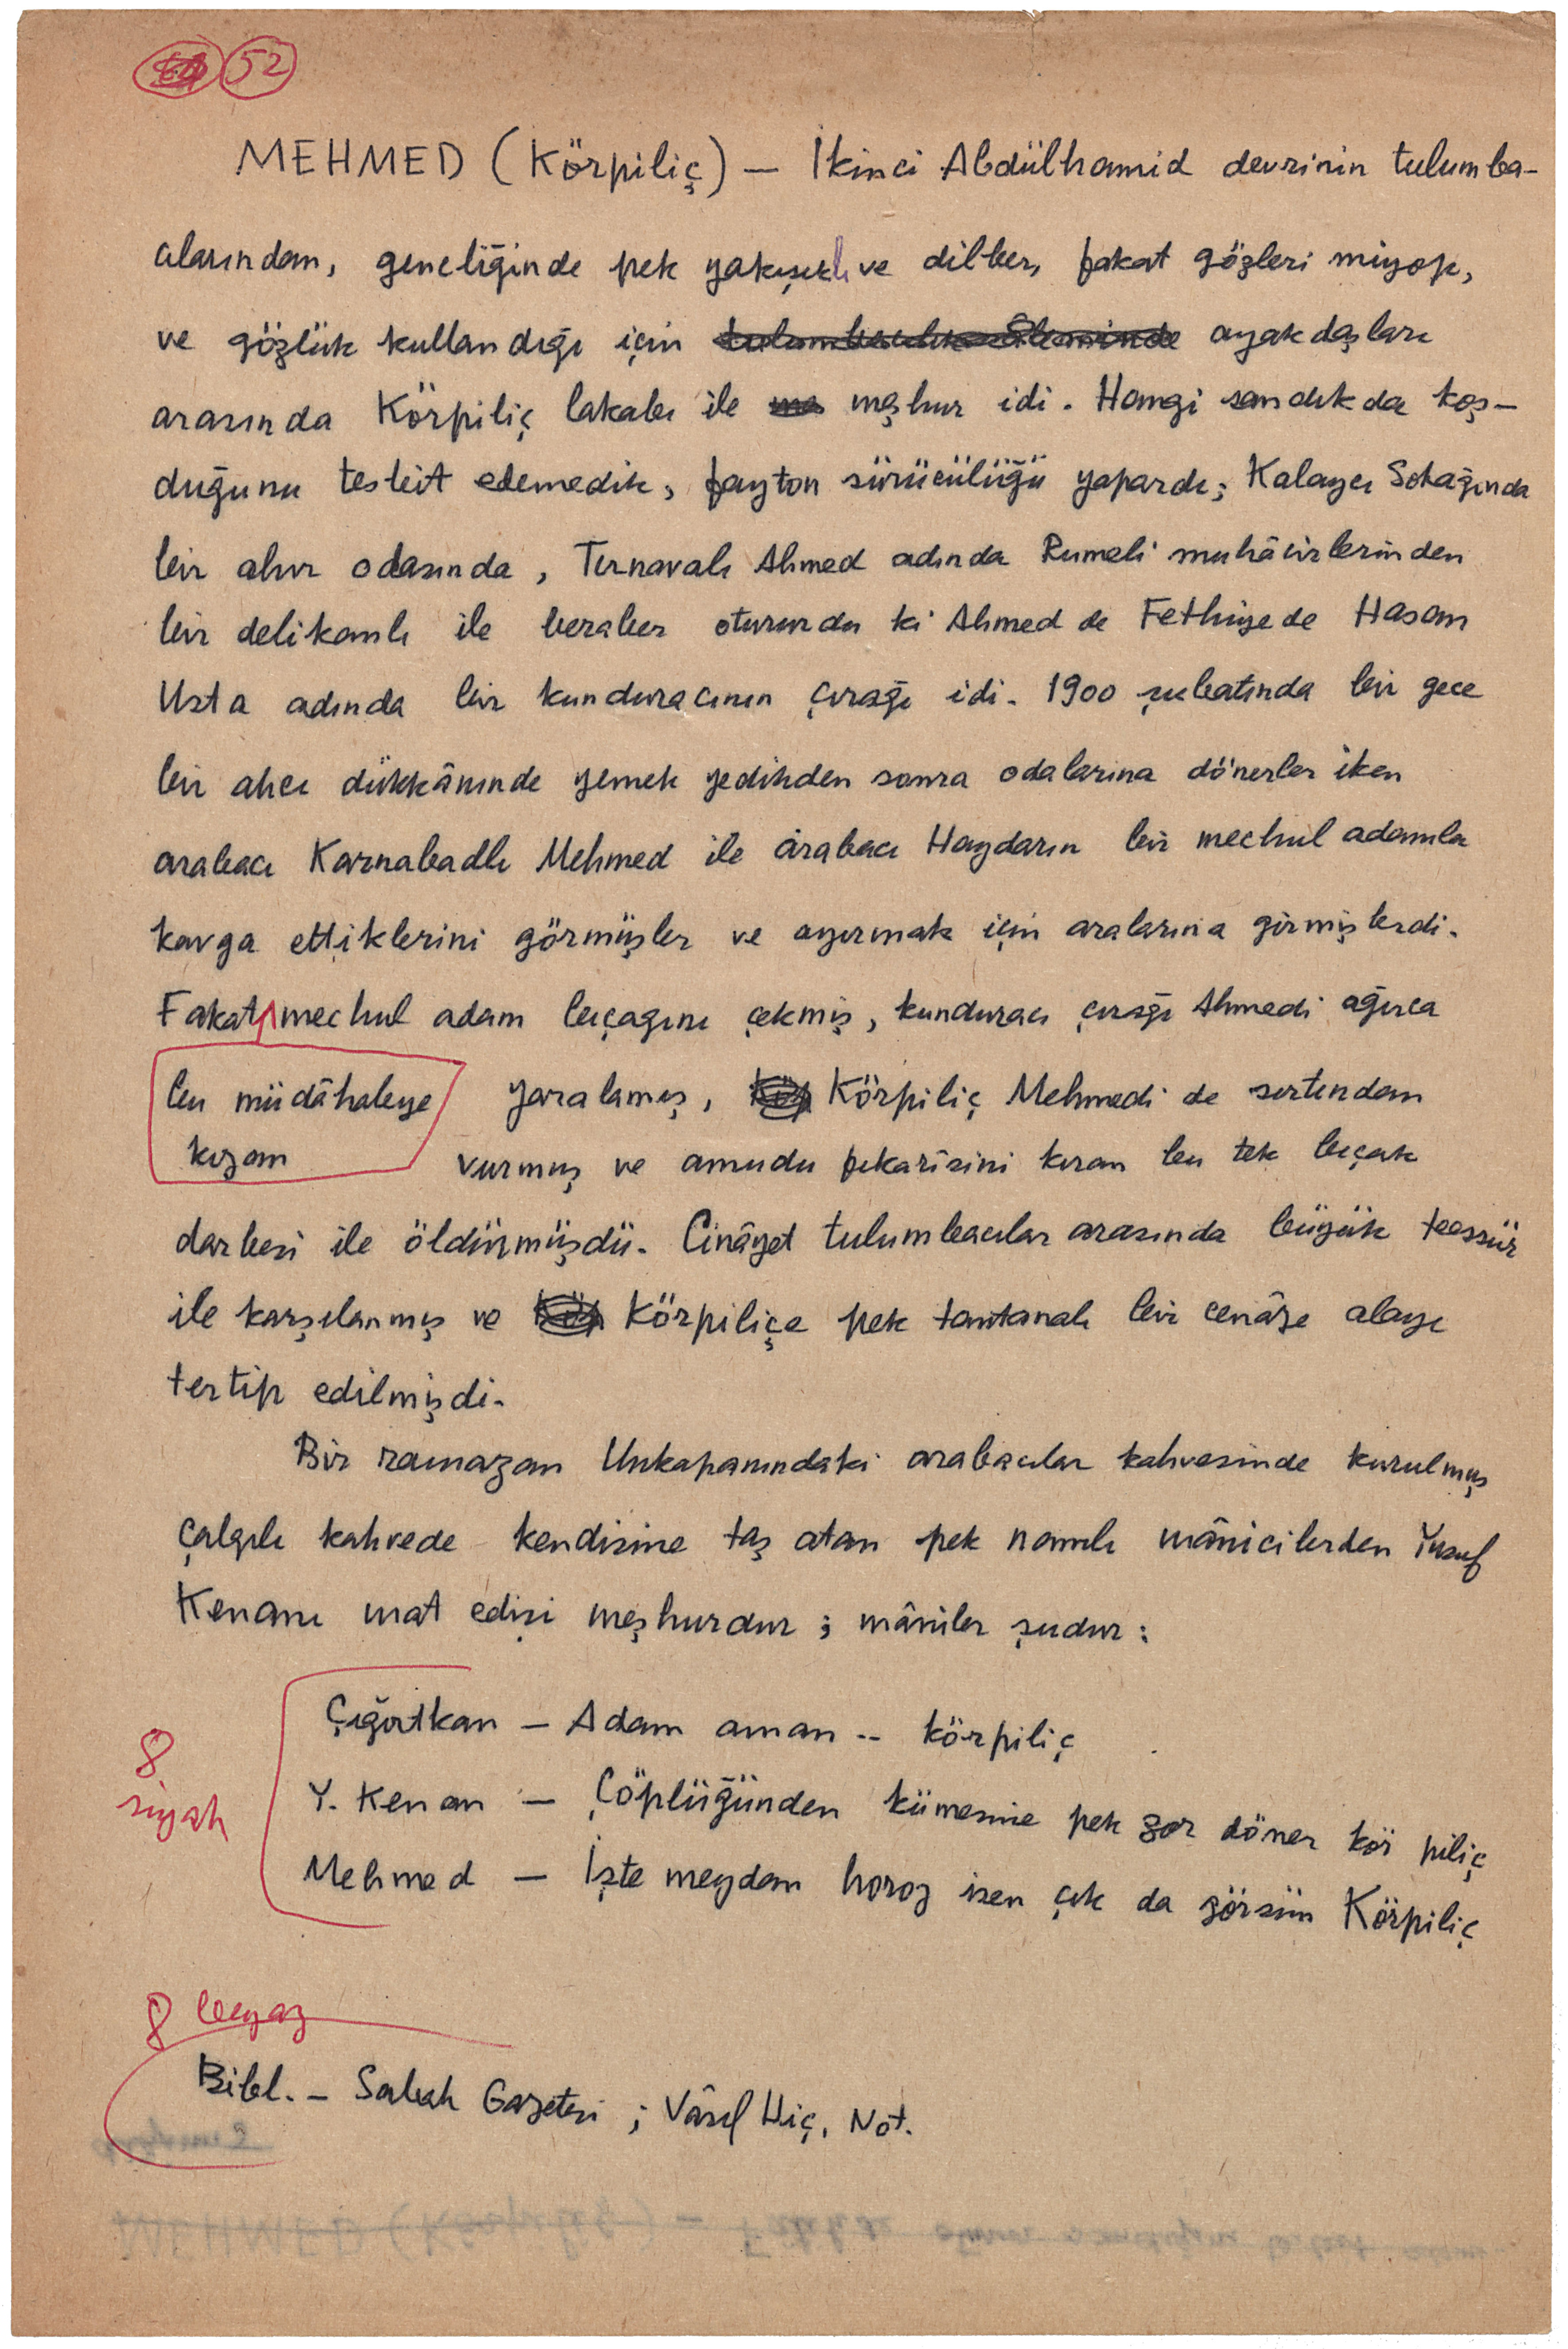 52
MEHMED (Körpiliç) — İkinci Abdülhamid devrinin tulumba-
cılarından, gençliğinde pek yakışıklı ve dilber, fakat gözleri miyop,
ve gözlük kullandığı için tulumbacılık âleminde ayakdaşları
arasında Körpiliç lakabı ile meşhur idi. Hangi sandıkda koş-
duğunu tesbit edemedik, fayton sürücülüğü yapardı; Kalaycı Sokağında
bir ahır odasında, Tırnavalı Ahmed adında Rumeli muhâcirlerinden
bir delikanlı ile beraber otururdu ki Ahmed de Fethiyede Hasan
Usta adında bir kunduracının çırağı idi. 1900 şubatında bir gece
bir ahcı dükkânında yemek yedikden sonra odalarına dönerler iken
arabacı Karnabadlı Mehmed ile arabacı Haydarın bir mechul adamla
kavga ettiklerini görmüşler ve ayırmak için aralarına girmişlerdi.
Fakat mechul adam bıçağını çekmiş, kunduracı çırağı Ahmedi ağırca
bu müdâhaleye
kızan
yaralamış, Körpiliç Mehmedi de sırtından
vurmuş ve amudu fıkarîsini kıran bu tek bıçak
darbesi ile öldürmüşdü. Cinâyet tulumbacılar arasında büyük teessür
ile karşılanmış ve Körpiliçe pek tantanalı bir cenâze alayı
tertip edilmişdi.
Bir ramazan Unkapanındaki arabacılar kahvesinde kurulmuş
çalgılı kahvede kendisine taş atan pek namlı mânicilerden Yusuf
Kenanı mat edişi meşhurdur; mâniler şudur:
Çığırtkan — Adam aman.. körpiliç
Y. Kenan — Çöplüğünden kümesine pek zor döner kör piliç
Mehmed — İşte meydan horoz isen çık da görsün Körpiliç
8
siyah
8 beyaz
Bibl. — Sabah Gazetesi; Vâsıf Hiç, Not.